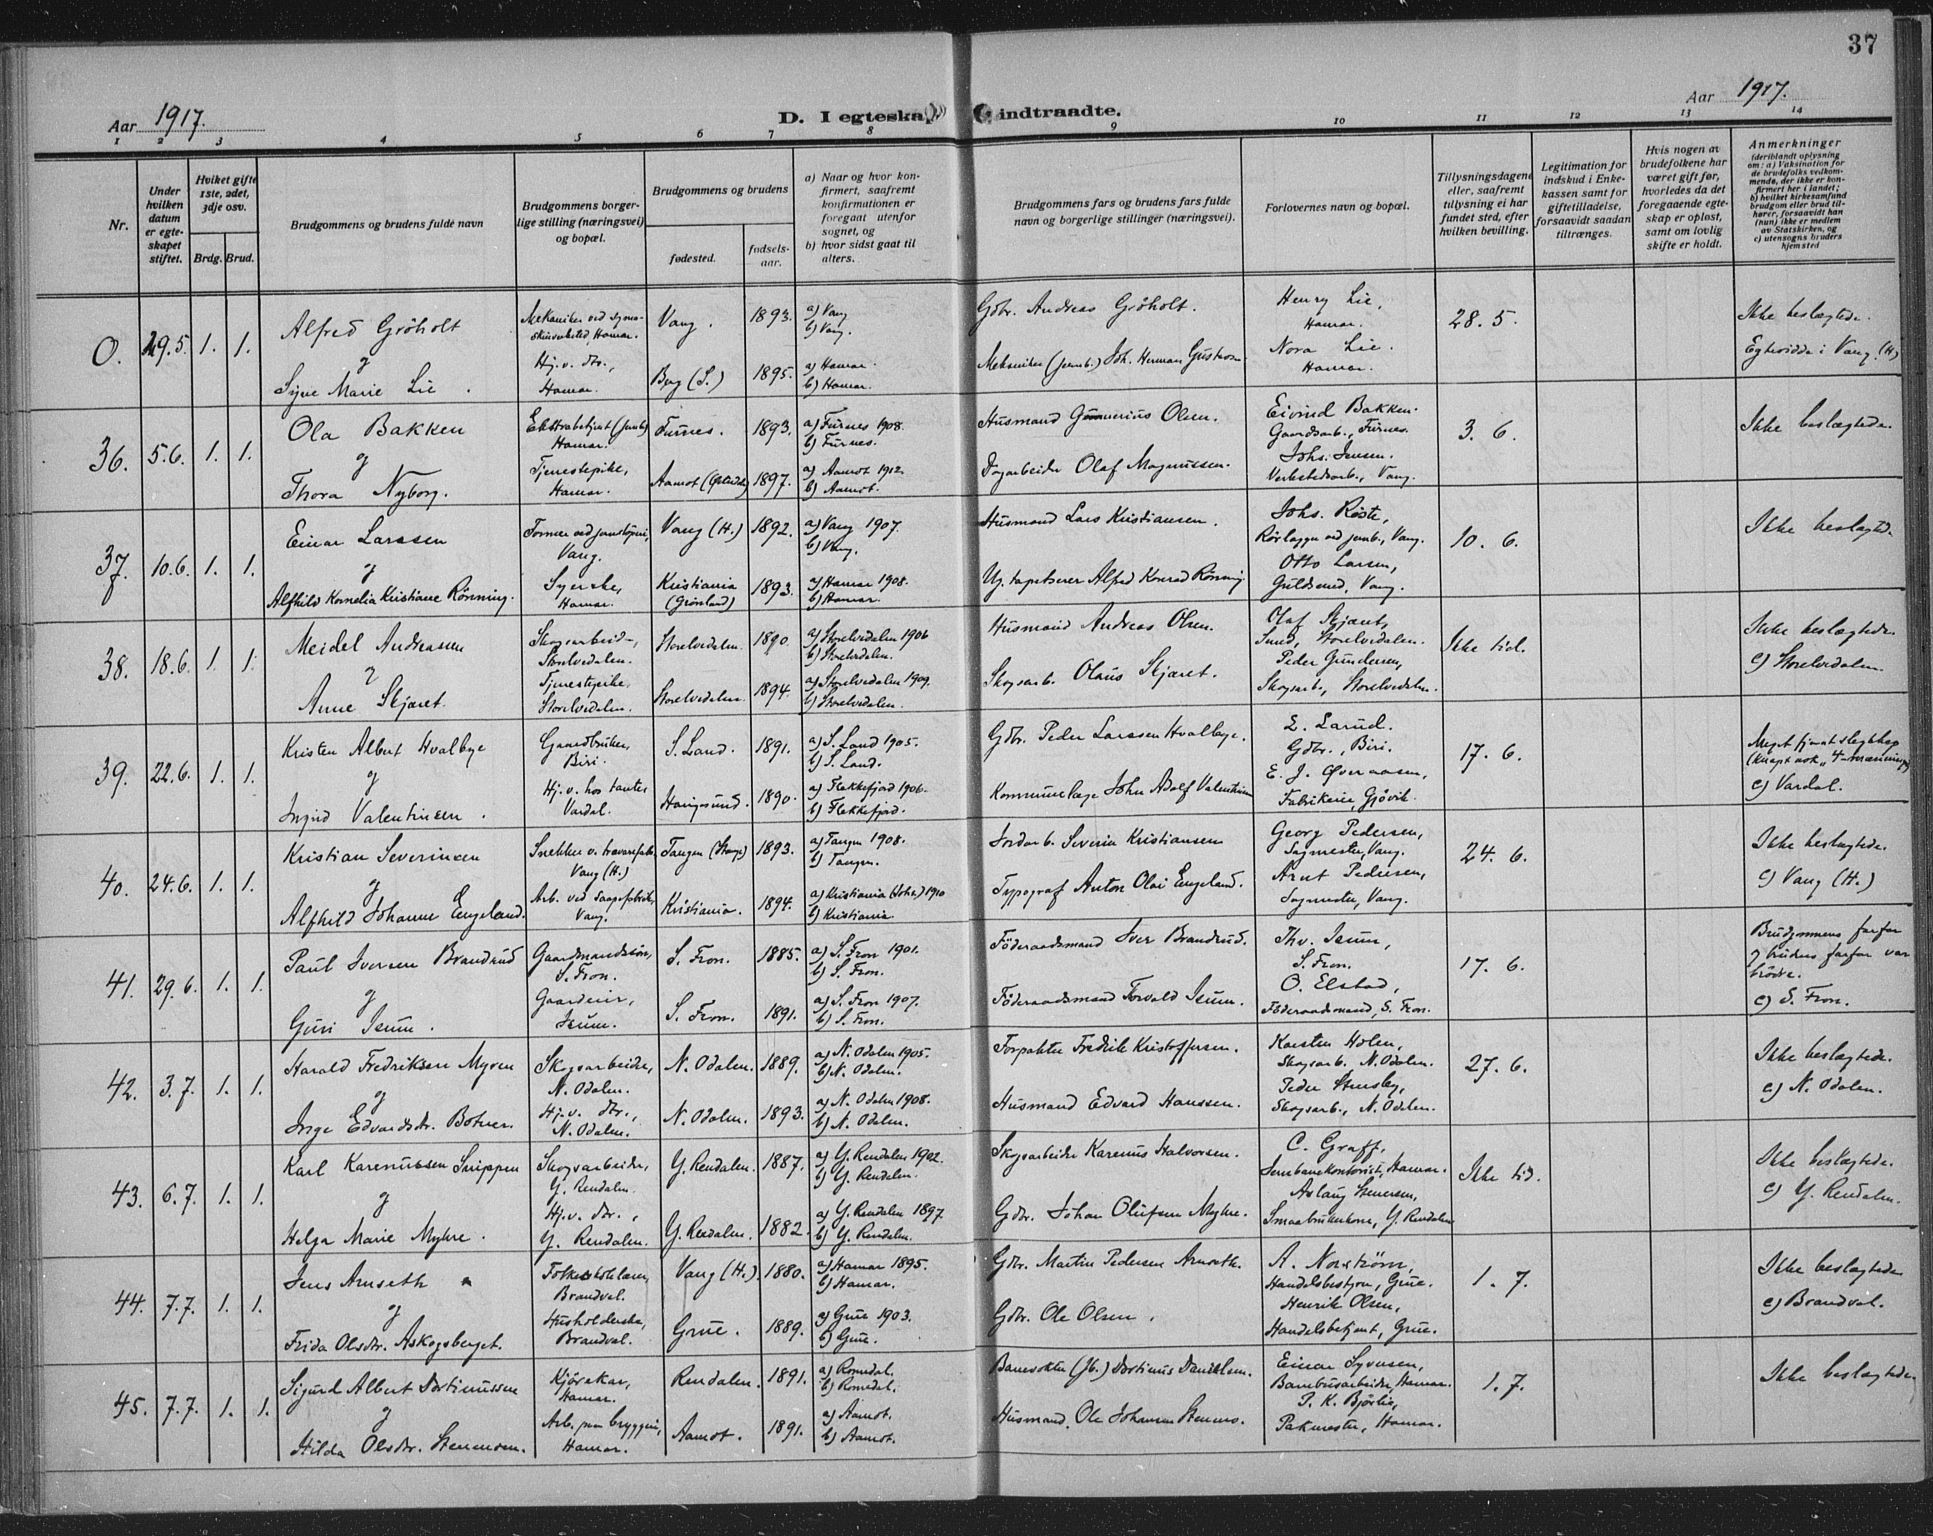 37
Aar 1917.
D. I egteskap indtraadte.
Aar 1917.
1 2 3 4 5 6 7 8 9 10 11 12 13 14
Nr.
Under hvilken datum er egteskapet stiftet.
Hviket gifte 1ste, 2det, 3dje osv.
Brdg. Brud.
Brudgommens og brudens fulde navn
Brudgommens borgerlige stilling (næringsvei) og bopæl.
Brudgommens og brudens
fødested.
fødselsaar.
a) Naar og hvor konfirmert, saafremt konfirmationen er foregaat utenfor sognet, og
b) hvor sidst gaat til alters.
Brudgommens fars og brudens fars fulde navn og borgerlige stillinger (næringsvei).
Forlovernes navn og bopæl.
Tillysningsdagene eller, saafremt tillysning ei har fundet sted, efter hvilken bevilling.
Legitimation for indskud i Enkekassen samt for giftetilladelse, forsaavidt saadan tiltrænges.
Hvis nogen av brudefolkene har været gift før, hvorledes da det foregaaende egteskap er opløst, samt om lovlig skifte er holdt.
Anmerkninger
(deriblandt oplysning om: a) Vaksination for de brudefolks vedkommende, der ikke er konfirmert her i landet; b) hvilket kirkesamfund brudgom eller brud tilhører, forsaavidt han (hun) ikke er medlem av Statskirken, og c) utensogns bruders hjemsted
0. 29.5. 1. 1. Alfred Gröholt
Mekaniker ved symaskinverksted, Hamar. Vang. 1893. a) Vang b) Vang.
Gdbr. Andreas Gröholt. Henry Lie, Hamar. 28. 5. Ikke beslægtede.
g
Signe Marie Lie. Hj. v. dtr., Hamar. Berg (S.) 1895. a) Hamar. b) Hamar.
Mekaniker (jernb.) Joh. Herman Nora Lie. Hamar. Egteviede i Vang (H)
36. 5.6. 1. 1. Ola Bakken
Ekstrabetjent (jernb) Hamar. Furnes. 1893. a) Furnes 1908. b) Furnes.
Husmand Gunnerius Olsen. Eivind Bakken. Gaardsarb., Furnes. 3. 6. Ikke beslægtede.
g
Thora Nyborg. Tjenestepike, Hamar. Aamot 1897. a) Aamot 1912. b) Aamot.
Dagarbeider Olaf Magnussen. Johs. Jensen. Verkstedsarb., Vang.
37. 10.6. 1. 1. Einar Larssen
Former ved jernstöperi, Vang. Vang (H.) 1892. a) Vang 1907. b) Vang.
Husmand Lars Kristiansen. Johs. Røste, Rörlægger ved jernb., Vang. 10. 6. Ikke beslægted.
g
Alfhild Kornelia Kristiane Rönning. Syerske, Hamar. Kristiania (Grönland) 1893. a) Hamar 1908. b) Hamar.
tapetserer Alfred Konrad Rönning Otto Larsen, Guldsmed, Vang.
38. 18.6. 1. 1. Meidel Andreassen
Skogsarbeid-, Storelvedalen. Storelvedalen. 1890. a) Storelvedalen 1906 b) Storelvedalen.
Husmand Andreas Olsen. Olaf Skjæret, Sund, Storelvedalen. Ikke tid. Ikke beslægtede.
g
Anne Skjæret. Tjenestepike. Storelvedalen. Storelvedalen 1894. a) Storelvedalen 1909. b) Storelvedalen.
Skogsarb. Olaus Skjæret. Peder Gundersen, Skogsarb., Storelvedalen. c) Storelvedalen
39. 22.6. 1. 1. Kristen Albert Hvalbye
Gaardbruker, Biri. S. Land. 1891. a) S. Land 1905. b) S. Land.
Gdbr. Peder Larssen Hvalbye. L. Larud. Gdbr., Biri. 17. 6. Meget fjernt slegtskap
g
Ingrid Valentinsen. Hj. v. hos tanter Vardal. Haugesund. 1890. a) Flekkefjord 1906. b) Flekkefjord.
Kommunelæge John Adolf Valentinsen E. J. Øveraasen, Gjøvik. c) Vardal.
40. 24.6. 1. 1. Kristian Severinsen
Snekker v. Vang (H.) Tangen (Stange) 1893. a) Tangen 1908. b) Tangen.
Jordarb. Severin Kristiansen Georg Pedersen, Sagmester, Vang. 24. 6. Ikke beslægtede.
g
Alfhild Johanne Engeland. Arb. ved Vang. Kristiania. 1894. a) Kristiania (Joh.) 1910 b) Kristiania
Typograf Anton Olai Engeland. Arnt Pedersen, Sagmester, Vang. c) Vang (H.)
41. 29.6. 1. 1. Paul Iversen Brandrud
Gaardmandssön, S. Fron. S. Fron. 1885. a) S. Fron 1901. b) S. Fron.
Föderaadsmand Iver Brandrud. Thv. Isum, S. Fron. 17. 6. Brudgommens farfar g brudens farfar var brödre.
g
Guri Isum. Gaardeier, Isum. S. Fron. 1891. a) S. Fron 1907. b) S. Fron.
Föderaadsmand Torvald Isum. O. Elstad, Föderaadsmand, S. Fron. c) S. Fron.
42. 3.7. 1. 1. Harald Fredriksen Myren
Skogsarbeider, N. Odalen. N. Odalen. 1889. a) N. Odalen 1905. b) N. Odalen.
Forpakter Fredrik Kristoffersen. Karsten Holen, Skogsarb., N. Odalen. 27. 6. Ikke beslægtede.
g
Inge Edvardsdtr. Botner. Hj. v. dtr., N. Odalen. N. Odalen. 1893. a) N. Odalen 1908. b) N. Odalen.
Husmand Edvard Hanssen. Peder Stensby, Skogsarb., N. Odalen. c) N. Odalen.
43. 6.7. 1. 1. Karl Karenussen Snippen
Skogsarbeider, Y. Rendalen. Y. Rendalen. 1887. a) Y. Rendalen 1902. b) Y. Rendalen.
Skogsarbeider Karenus Halvorsen. C. Graff, Jernbanekontorist, Hamar. Ikke tid. Ikke beslægtede.
g
Helga Marie Myhre. Hj. v. dtr., Y. Rendalen. Y. Rendalen. 1882. a) Y. Rendalen 1897. b) Y. Rendalen.
Gdbr. Johan Olufsen Myhre. Aslaug Stenersen, Smaabrukerkone, Y. Rendalen c) Y. Rendalen.
44. 7.7. 1. 1. Jens Arnseth
Folkeskolelærer, Brandval. Vang (H.) 1880. a) Hamar 1895. b) Hamar.
Gdbr. Martin Pedersen Arnseth. A. Norström, Handelsbestyrer, Grue. 1. 7. Ikke beslægtede
g
Frida Olsdtr. Askogsberget. Husholderske, Brandval. Grue. 1889. a) Grue 1903. b) Grue.
Gdbr. Ole Olsen. Henrik Olsen, Handelsbetjent, Grue. c) Brandval.
45. 7.7. 1. 1. Sigurd Albert Dortinussen
Kjörekar, Hamar. Rendalen. 1891. a) Romedal. b) Romedal.
Banevokter (Jb.) Dortinus Danielsen. Einar Syversen, Hamar. 1. 7. Ikke beslægtede
g
Hilda Olsdtr. Stenersen. Arb. paa bryggeri, Hamar. Aamot. 1891. a) Aamot. b) Aamot.
Husmand Ole Johansen P. K. Björlie, Pakmester, Hamar.